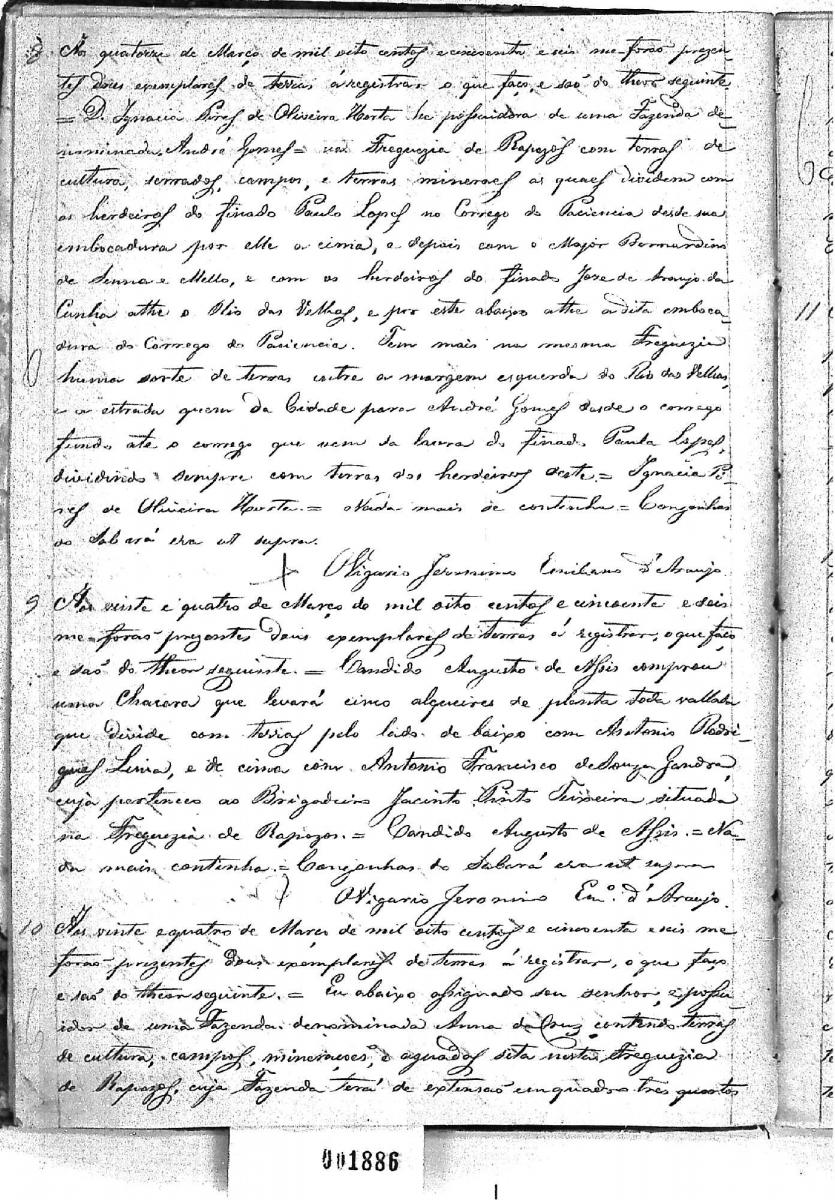 8 Aos quatorze de Março de mil oito centos e cincoenta e seis me forão prezen-
tes dous exemplares de terras á registrar o que faço, e são do theor seguinte
= D. Ignacia Pires de Oliveira Horta he possuidora de uma Fazenda de-
nominada André Gomes = na Freguezia de Rapozos com terras de
cultura, serrados, campos, e terras mineraes as quaes dividem com
os herdeiros do finado Paulo Lopes no Corrego do Paciencia desde sua
embocadura por elle a cima, e depois com o Major Bernardino
de Senna e Mello, e com os herdeiros do finado Joze de Araujo da
Cunha athe o Rio das Velhas, e por este abaixo athe a dita emboca-
dura do Corrego do Paciencia. Tem mais na mesma Freguezia
huma sorte de terras entre a margem esquerda do Rio das Velhas,
e a estrada que da Cidade para André Gomes desde o corrego
fundo até o corrego que vem da lavra do finado Paula Lopes,
dividindo sempre com terras dos herdeiros deste. = Ignacia Pi-
res de Oliveira Horta. = Nada mais se continha = Congonhas
do Sabará era ut supra.
O Vigario Jeronimo Emiliano d'Araujo
9 Aos vinte e quatro de Março de mil oito centos e cincoente e seis
me forão prezentes dous exemplares de terras á registrar, o que faço
e são do theor seguinte. = Candido Augusto de Assis comprou
uma Chacara que levará cinco alqueires de planta toda vallada
que divide com terras pelo lado de baixo com Antonio Rodri-
gues Lima, e de cima com Antonio Francisco de Souza Gandra,
cuja pertenceo ao Brigadeiro Jacinto Pinto Teixeira situada
na Freguezia de Rapozos. = Candido Augusto de Assis. = Na-
da mais continha. = Congonhas do Sabará era ut supra
O Vigario Jeronimo Emº. d'Araujo.
10 Aos vinte e quatro de Março de mil oito centos e cincoenta e seis me
forão prezentes dous exemplares de terras á registrar, o que faço
e são do theor seguinte. = Eu abaixo assignado sou senhor, e possui-
idor de uma Fazenda denominada Anna da Cruz contendo terras
de cultura, campos, mineraçoes, e aguadas sita nesta Freguezia
de Rapozos, cuja Fazenda terá de extensão em quadro tres quartos
11
001886